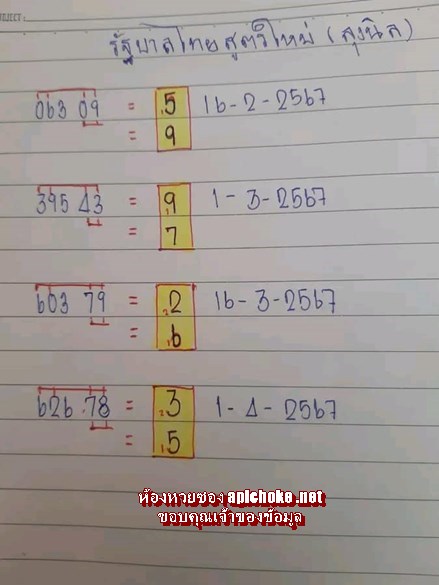 รัฐบาลไทยสูตรใหม่ (ลุงนิล)
06309 = 5 16-2-2567
= 9
39543 = 9 1-3-2567
= 7
60379 = 2 16-3-2567
= 6
62678 = 3 1-4-2567
= 5
ห้องหวยซอง apichoke.net
ขอบคุณเจ้าของข้อมูล